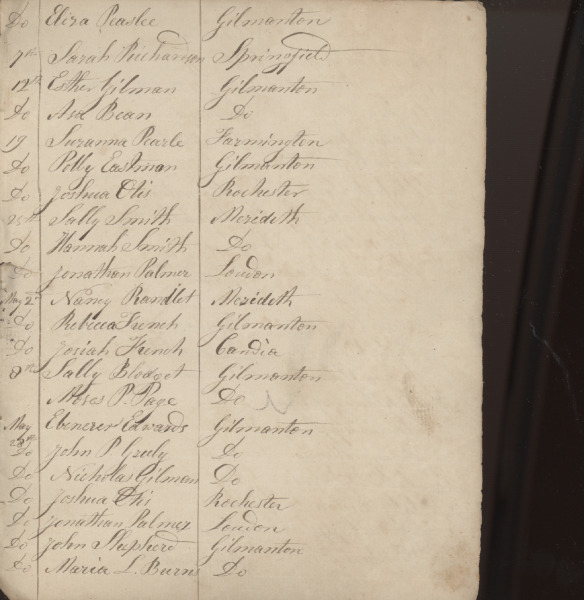 Do Eliza Peaslee Gilmanton
7th Sarah Richardson Springfield
12th Esther Gilman Gilmanton
Do Asa Bean Do
19 Suzanna Pearle Farmington
Do Polly Eastman Gilmanton
Do Joshua Otis Rochester
25th Sally Smith Merideth
Do Hannah Smith Do
Do Jonathan Palmer Loudon
May 2d Nancy Randlet Merideth
Do Rebecca French Gilmanton
Do Josiah French Candia
8th Sally Blodget Gilmanton
Moses P. Page Do
May 28th Ebenezer Edwards Gilmanton
Do John P Gruly Do
Do Nicholas Gilman Do
Do Joshua Otis Rochester
Do Jonathan Palmer Loudon
Do John Shepherd Gilmanton
Do Maria L. Burns Do